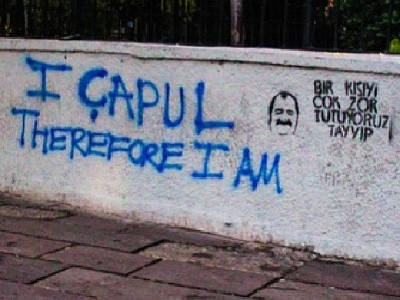 I ÇAPUL
THEREFORE I AM
BIR KISIYI
ÇOK ZOR
TUTUYORUZ
TAYYIP